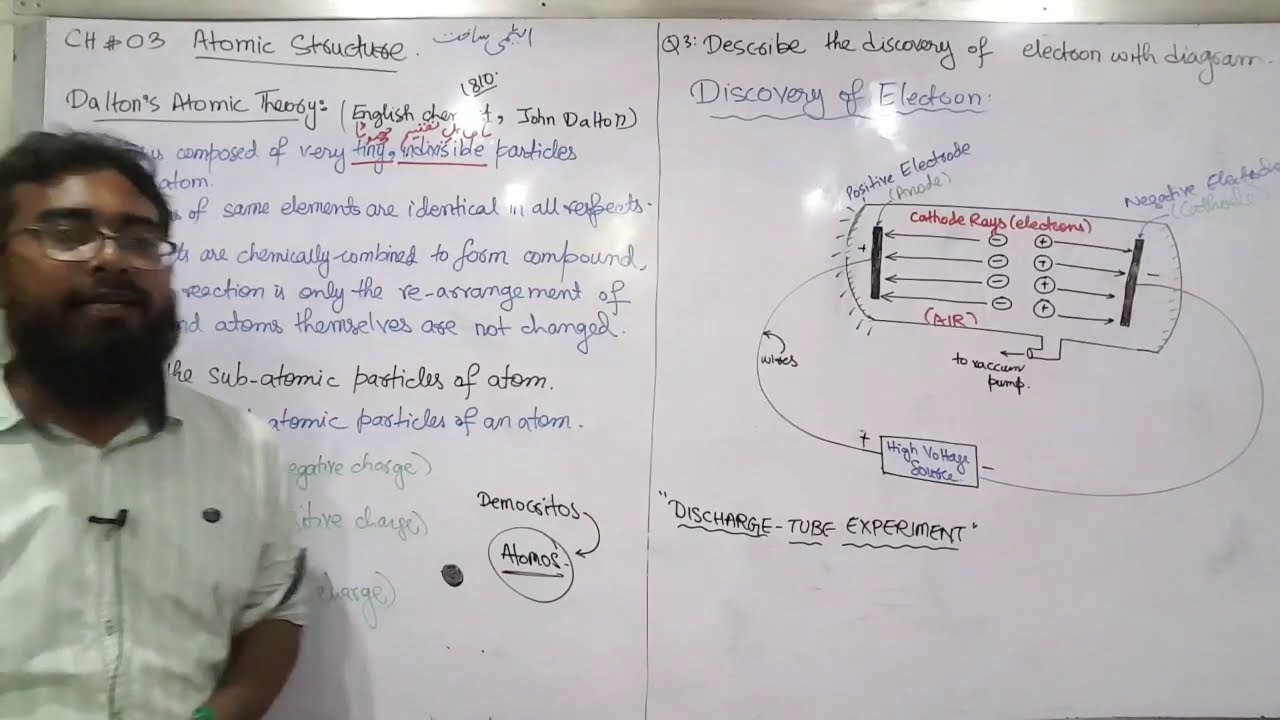 CH # 03 Atomic Structure. ایٹمی ساخت
1810.
Dalton's Atomic Theory: (English che t, John Dalton)
ناقابل تقسیم چھوٹا
is composed of very tiny, indivisible particles
atom.
of same elements are identical in all respects.
ts are chemically combined to form compound.
reaction is only the re-arrangement of
nd atoms themselves are not changed.
the sub-atomic particles of atom.
atomic particles of an atom.
egative charge)
itive charge)
charge)
Democritos
Atomos.
Q3: Describe the discovery of electron with diagram.
Discovery of Electron:
Positive Electrode
(Anode)
Negative Electrode
(Cathode)
Cathode Rays (electrons)
+ − + −
− +
− +
− +
(AIR)
wires
to vaccum
pump.
+ High Voltage −
Source.
"DISCHARGE-TUBE EXPERIMENT"